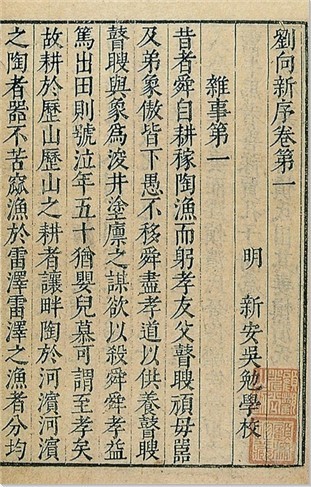 劉向新序卷第一
明　新安吳勉學校
雜事第一
昔者舜自耕稼陶漁而躬孝友父瞽瞍頑母嚚
及弟象傲皆下愚不移舜盡孝道以供養瞽瞍
瞽瞍與象為浚井塗廩之謀欲以殺舜舜孝益
篤出田則號泣年五十猶嬰兒慕可謂至孝矣
故耕於歷山歷山之耕者讓畔陶於河濱河濱
之陶者器不苦窳漁於雷澤雷澤之漁者分均